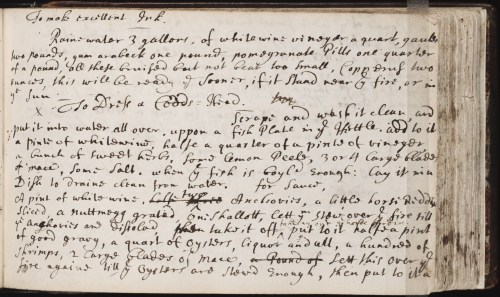 To mak excellent Ink.
Raine water 3 gallors, of white wine vineger a quart, gaules
two pounds, gum arabeck one pound, pomegranate Pills one quarter
of a pound, all these bruised but not beat too small, Copperus two
ounces, this will be ready ye sooner, if it stand near ye fire, or in
ye sun.
x To Dress a Codds-Head
Scrape and wash it clean and
put it into water all over, upon a fish Plate in ye Kettle. add to it
a pinte of whitewine, halfe a quarter of a pinte of vineger
a bunch of sweet herbs, some lemon Peele, 3 or 4 large blades
of mace, some salt. when ye fish is boyld Enough: lay it in a
Dish to draine clean from water. for sauce,
A pint of white wine, Anchovies, a little horse Reddish
sliced a nuttmegg grated, one shallott, lett ym stew over ye fire till
ye anchovies are disolvd then take it off, put to it halfe a pint
of good gravy, a quart of oysters, liquor and all, a hundred of
shrimps, 2 large blades of mace, a Pound of Lett this over ye
fire againe till ye oysters are stewd Enough, then put to it a